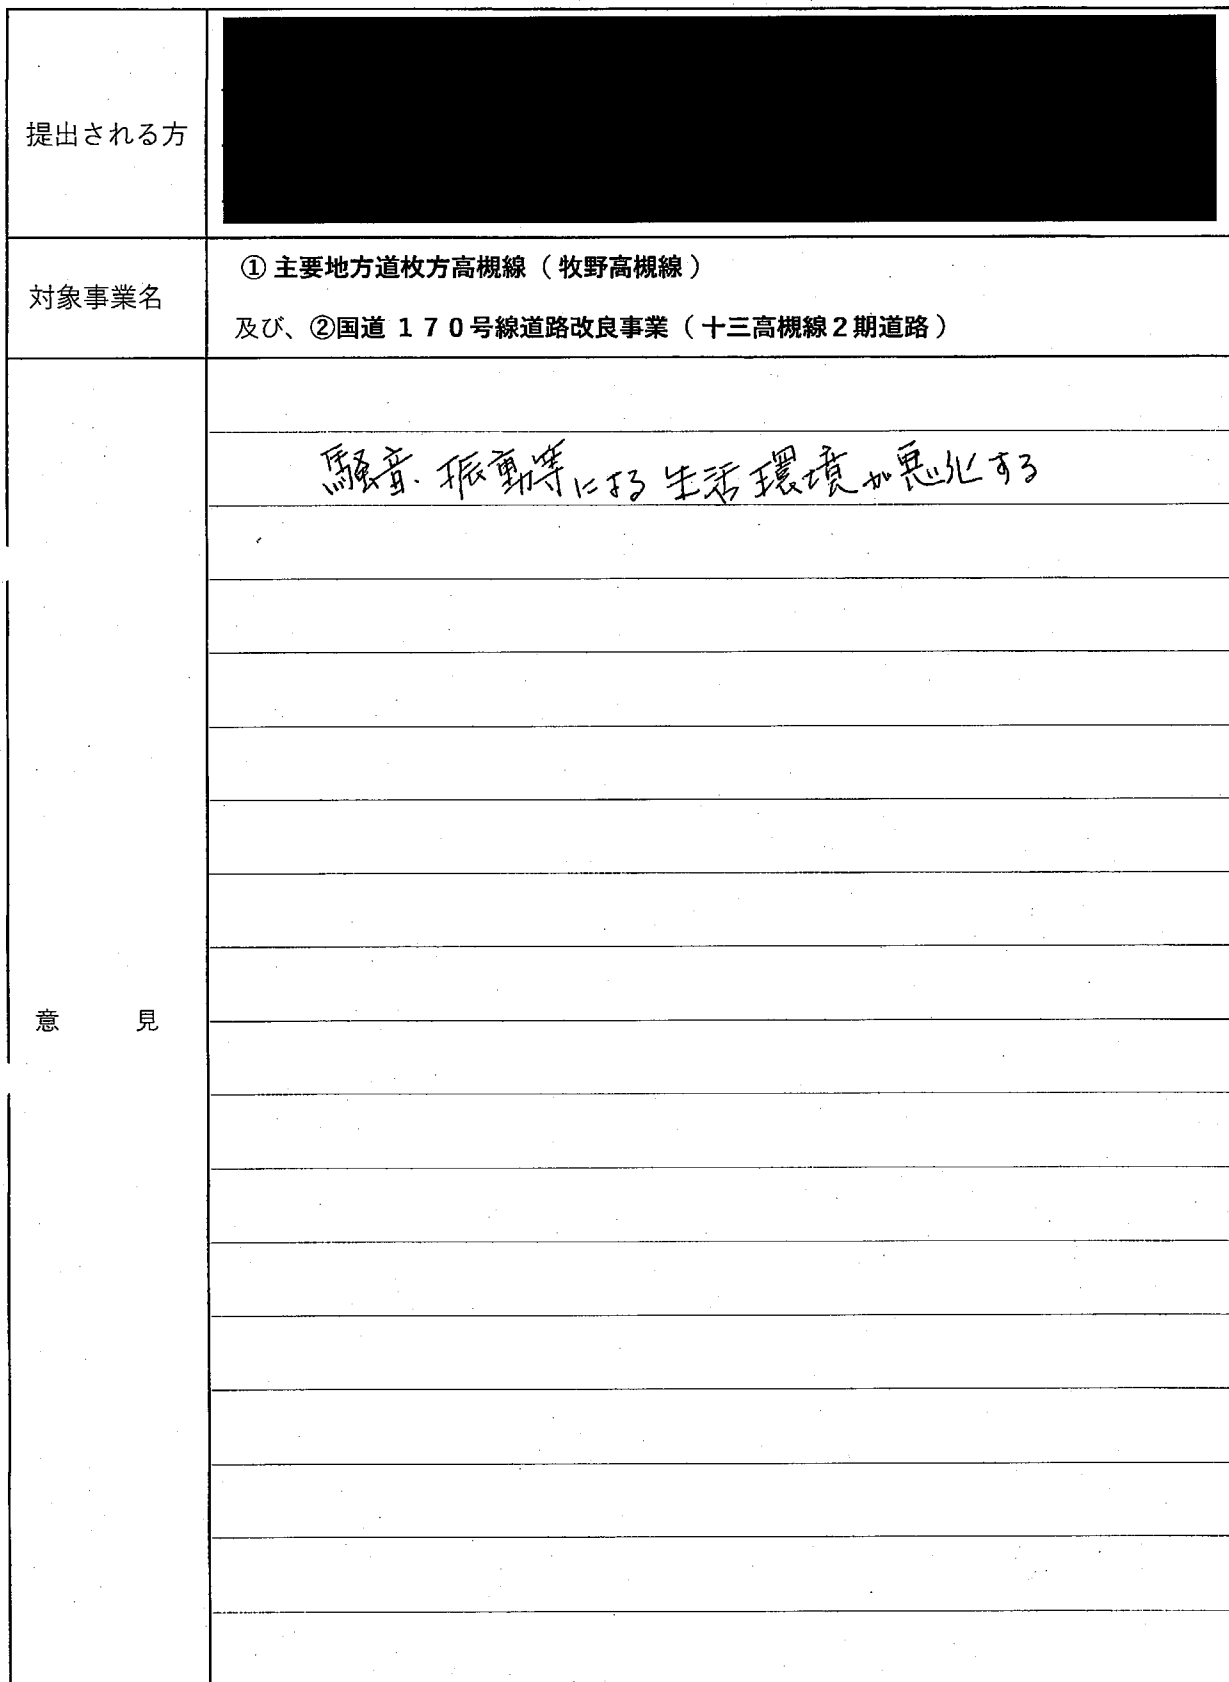 提出される方
対象事業名
① 主要地方道枚方高槻線（牧野高槻線）
及び、②国道１７０号線道路改良事業（十三高槻線２期道路）
騒音、振動等による生活環境が悪化する
意　見